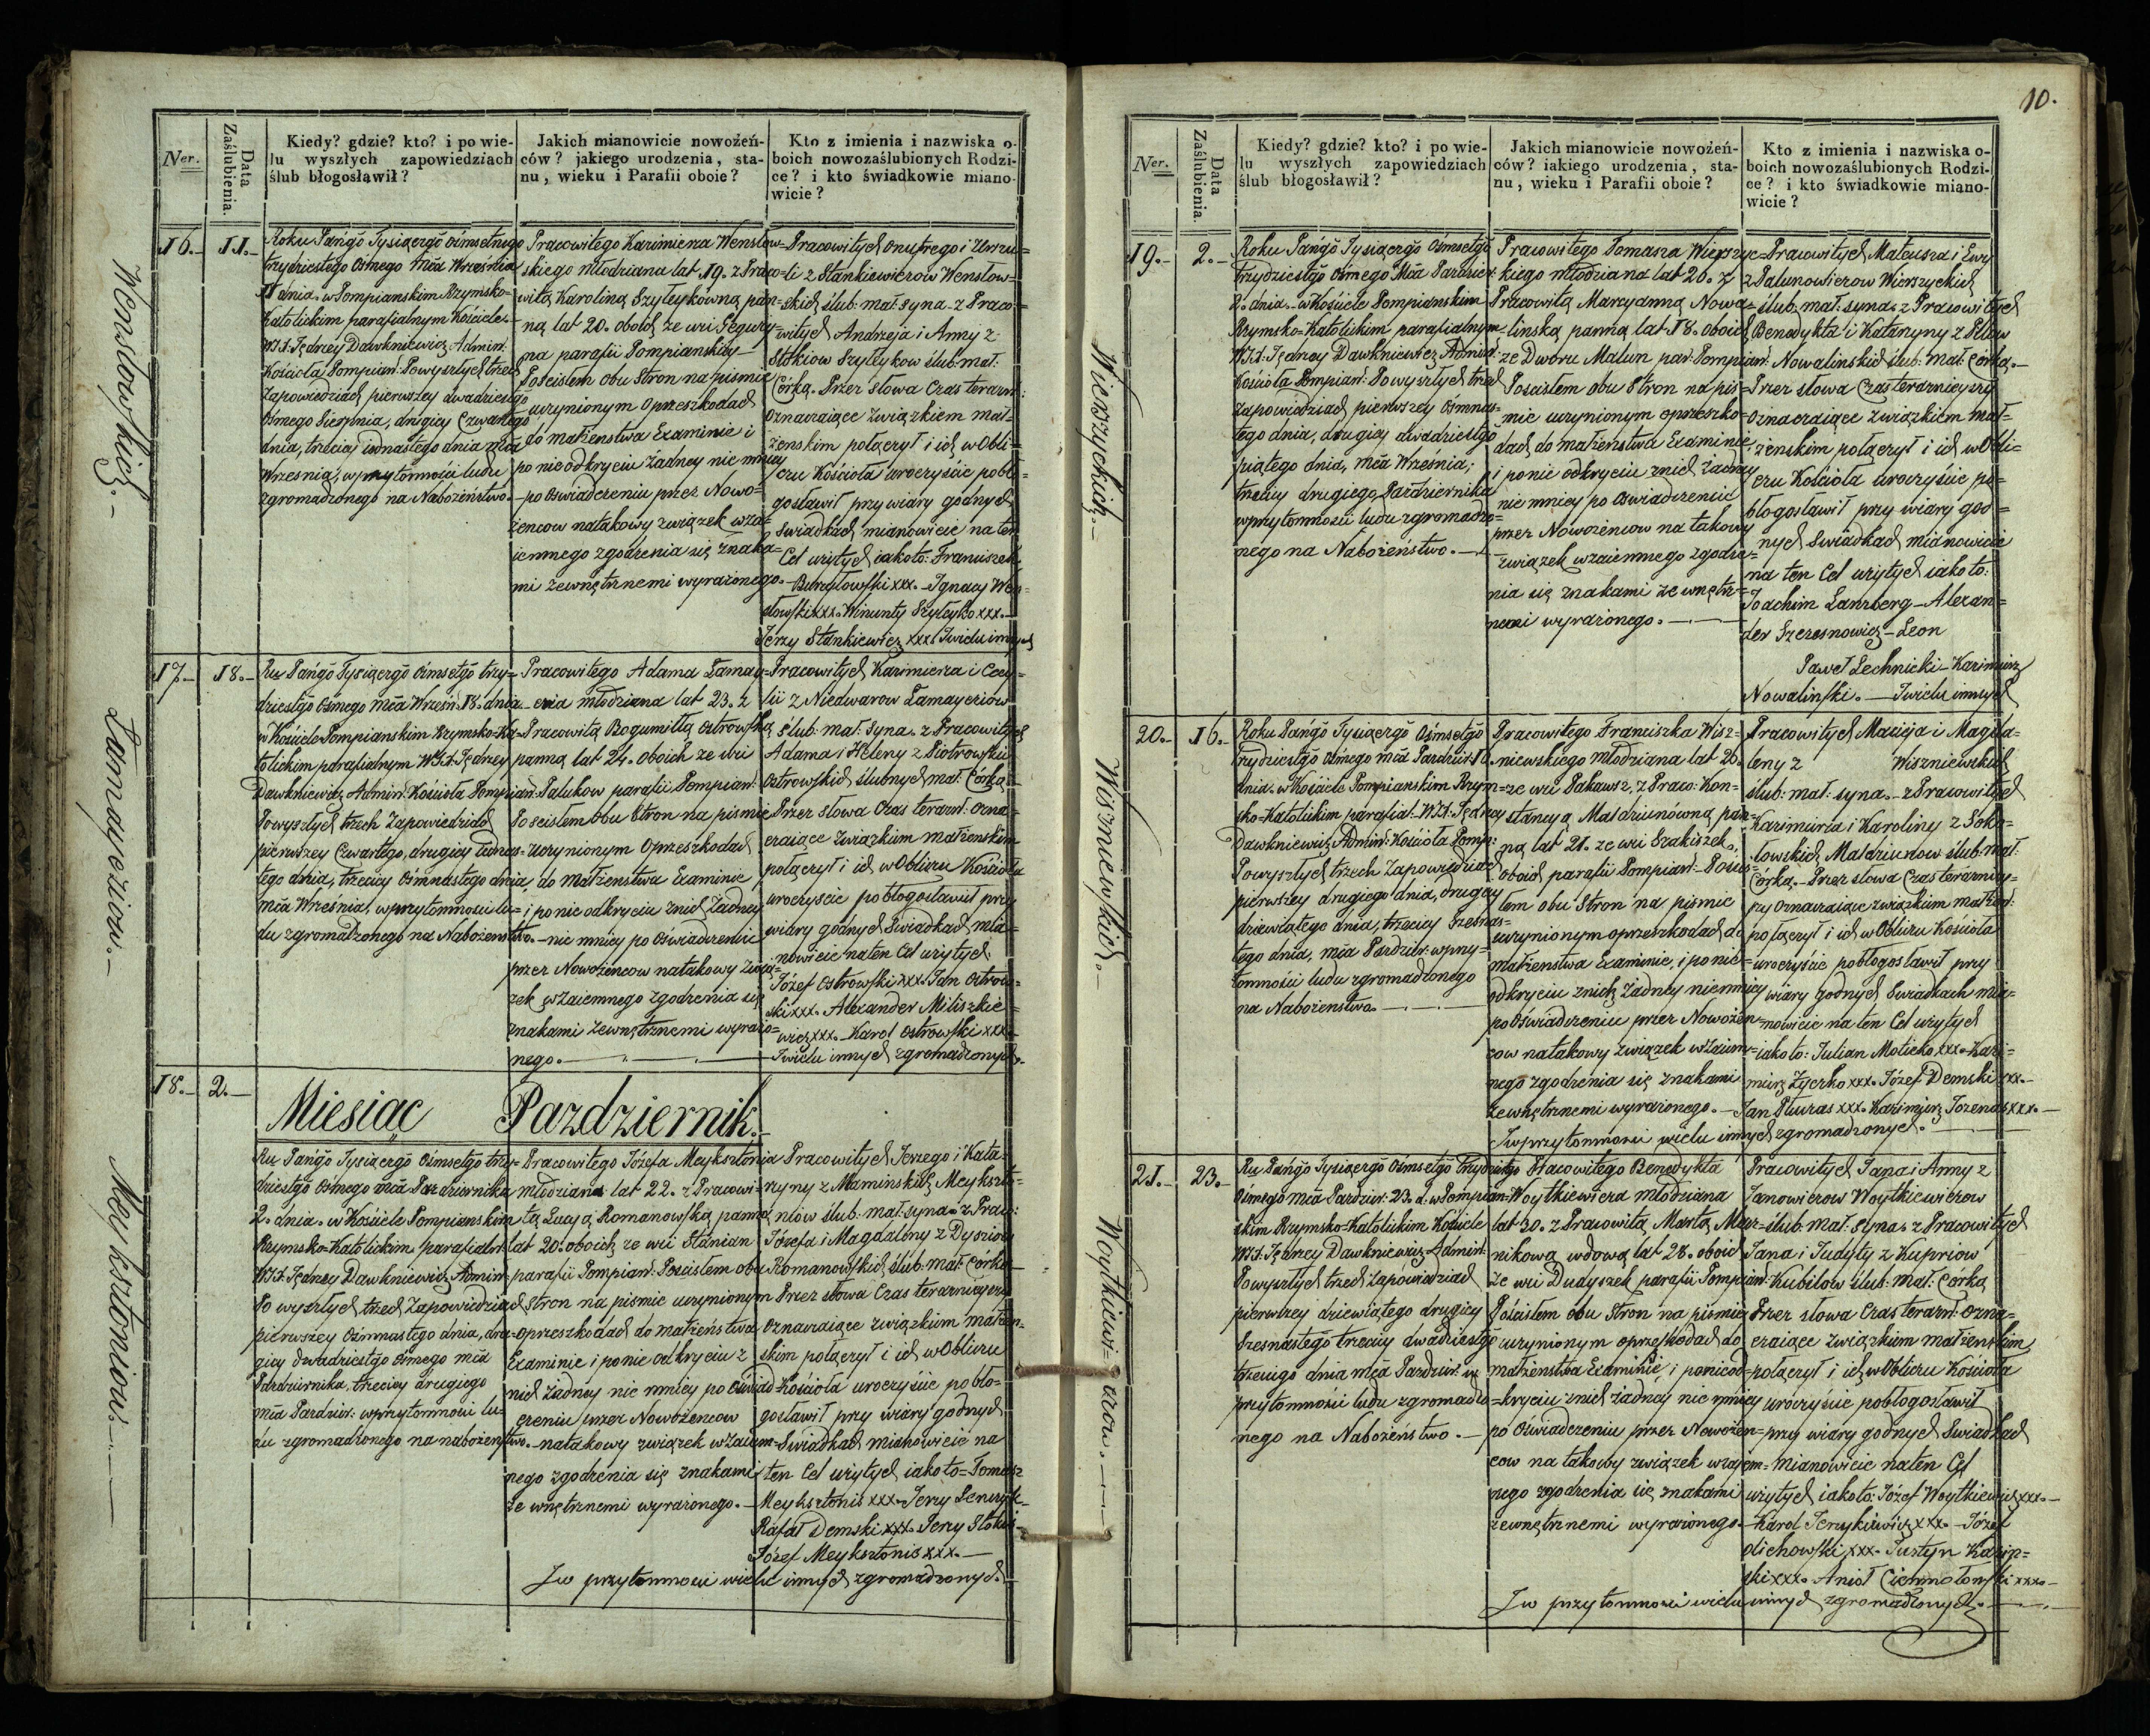 Ner.
Data
Zaślubienia.
Kiedy? gdzie? kto? i po wie-
lu wyszłych zapowiedziach
ślub błogosławił?
Jakich mianowicie nowożeń-
ców? jakiego urodzenia, sta-
nu, wieku i Parafii oboie?
Kto z imienia i nazwiska o-
boich nowozaślubionych Rodzi-
ce? i kto świadkowie miano-
wicie?
Wenslowskich.
16. 11.
Roku Pańgō Tysiącgō Ośmsetnego
trzydziestego Osmego Mca Września
11 dnia. w Pompianskim Rzymsko=
Katolickim parafialnym Kościele.
WJX. Jędrzey Dawkniewicz Admin:
Kościoła Pompiań: Powyszłych trzech
Zapowiedziach pierwszey dwadziestego
Osmego Sierpnia, drugiey Czwartego
dnia, trzeciey iednastego dnia mca
Września, w przytomności ludu
zgromadzonego na Nabożeństwo.
Pracowitego Kazimierza Wenslow=
skiego młodziana lat 19. z Praco=
witą Karoliną Szyleykowną pan=
ną lat 20. oboich ze wsi Geguży=
na parafii Pompianskiey
Poscisłem obu Stron na pismie
uczynionym Oprzeszkodach
do małżenstwa Examinie i
po nie odkryciu żadney nie mniey
po Oswiadczeniu przez Nowo=
żencow natakowy związek wza=
iemnego zgodzenia się znaka=
mi zewnętrznemi wyrażonego.
Pracowitych Onufrego i Urszu=
li z Stankiewiczow Wenslow=
skich ślub: mał: syna. z Praco=
witych Andrzeja i Anny z
Stokiow Szyleykow ślub: mał:
Córką. Przez słowa Czas teraźn:
Oznaczaiące Związkiem mał=
żenskim połączył i ich w Obli=
czu Kościoła uroczyście pobło=
gosławił przy wiary godnych
Swiadkach mianowicie na ten
Cel użytych iako to: Franciszek
xxx. Ignacy Wen=
słowski xxx. Wincenty Szyleyko xxx.
Jerzy Stankiewicz xxx I wielu innych
Łamayciow.
17. 18.
Ru Pańgō Tysiącgō Ośmsetgō trzy=
dziestgō Osmego mca Wrześń: 18. dnia
w Kościele Pompianskim Rzymsko-Ka=
tolickim parafialnym WJX. Jędrzey
Dawkniewicz Admin: Kościoła Pompiań:
Powyszłych trzech Zapowiedziach
pierwszey Czwartego, drugiey Iednas=
tego dnia, trzeciey Osmnastego dnia
mca Września, w przytomności lu=
du zgromadzonego na Nabożenstwo.
Pracowitego Adama Łamay=
cia młodziana lat 23. z
Pracowitą Bogumiłłą Ostrowską
panną lat 24. oboich ze wsi
Palukow parafii Pompiań:
Poscisłem obu Stron na pismie
Uczynionym Oprzeszkodach
do małżenstwa Examinie
i po nie odkryciu znich Żadney
nie mniey po Oświadczeniu
przez Nowożencow natakowy Zwią=
zek wzaiemnego zgodzenia się
znakami zewnętrznemi wyrażo=
nego.
Pracowitych Kazimierza i Cecy=
lii z Niedwarow Łamayciow
ślub: mał: Syna. z Pracowitych
Adama i Heleny z Piotrowskich
Ostrowskich ślubnych mał: Córką
Przez słowa Czas teraźn: ozna=
czaiące Związkiem małżenskim
połączył i ich w Obliczu Kościoła
uroczyscie pobłogosławił przy
wiary godnych Swiadkach mia=
nowicie na ten Cel użytych
Józef Ostrowski xxx. Jan Ostrow=
ski xxx. Alexander Miliszkie=
wicz xxx. Karol Ostrowski xxx.
I wielu innych zgromadzonych.
Meyksztoniow.
18. 2.
Miesiąc Pazdziernik.
Ru Pańgō Tysiącgō Ośmsetgō trzy=
dziestgō Osmego mca Pazdziernika
2. dnia. w Kościele Pompianskim
Rzymsko-Katolickim parafialn:
WJX. Jędrzey Dawkniewicz Admin:
Po wyszłych trzech Zapowiedziach
pierwszey Osmnastego dnia, dru=
giey dwadziestgō Osmego mca
Pazdziernika, trzeciey drugiego
mca Pazdzier: w przytomności lu=
du zgromadzonego na nabożeństwo.
Pracowitego Józefa Meyksztonia
młodziana lat 22. z Pracowi=
tą Łucyą Romanowską panną
lat 20. oboich ze wsi Stanian
parafii Pompiań: Poscisłem obu
Stron na pismie uczynionym
oprzeszkodach do małżeństwa
Examinie i po nie odkryciu z
nich żadney nie mniey po Oświad=
czeniu przez Nowożencow
natakowy związek wzaiem=
nego zgodzenia się znakami
ze wnętrznemi wyrażonego.
Pracowitych Jerzego i Kata=
rzyny z Maminskich Meykszto=
niow ślub: mał: syna. z Prac:
Józefa i Magdaleny z
Romanowskich ślub: mał: Córką
Przez słowa Czas teraznieyszy
Oznaczaiące związkiem małżen=
skim połączył i ich w Obliczu
Kościoła uroczyście pobło=
gosławił przy wiary godnych
Swiadkach mianowicie na
ten Cel użytych iako to= Tomasz
Meyksztonis xxx. Jerzy
Rafał Demski xxx. Jerzy
Józef Meyksztonis xxx.
I w przytomności wielu innych zgromadzonych.
10.
Ner.
Data
Zaślubienia.
Kiedy? gdzie? kto? i po wie-
lu wyszłych zapowiedziach
ślub błogosławił?
Jakich mianowicie nowożeń-
ców? iakiego urodzenia, sta-
nu, wieku i Parafii oboie?
Kto z imienia i nazwiska o-
boich nowozaślubionych Rodzi-
ce? i kto świadkowie miano-
wicie?
Wierzyckich.
19. 2.
Roku Pańgō Tysiącgō Ośmsetgō
trzydziestgō Osmego Mca Paździer:
2. dnia. w Kościele Pompianskim
Rzymsko=Katolickim parafialnym
WJX. Jędrzey Dawkniewicz Admin:
Kościoła Pompiań: Powyszłych trzech
Zapowiedziach pierwszey Osmnas=
tego dnia, drugiey dwadziestgō
piątego dnia, mca Września;
trzeciey drugiego Pazdziernika
w przytomności ludu zgromadzo=
nego na Nabożeństwo.
Pracowitego Tomasza Wierzyc=
kiego młodziana lat 26. z
Pracowitą Maryanną Nowa=
linską panną lat 18. oboich
ze Dworu Malun par: Pompiań:
Poscisłem obu Stron na pis=
mie uczynionym oprzeszko=
dach do małżeństwa Examinie
i ponie odkryciu znich żadney
nie mniey po Oswiadczeniu
przez Nowożencow na takowy
związek wzaiemnego zgodze=
nia się znakami ze wnętrz=
nemi wyrażonego.
Pracowitych Mateusza i Ewy
z Wierzyckich
ślub: mał: syna. z Pracowitych
Benedykta i Katarzyny z
Nowalinskich ślub: mał: Córką.
Przez słowa Czas teraznieyszy
Oznaczaiące związkiem mał=
żenskim połączył i ich w Obli=
czu Kościoła uroczyście po=
błogosławił przy wiary god=
nych Swiadkach mianowicie
na ten Cel użytych iako to:
Joachim Lanzberg Alexan=
der Szczesnowicz Leon
Paweł Lechnicki Kazimierz
Nowaliński. I wielu innych
Wiszniewskich.
20. 16.
Roku Pańgō Tysiącgō Ośmsetgō
Trzydziestgō Osmego mca Pazdzier: 16.
dnia. w Kościele Pompianskim Rzym=
sko-Katolickim parafial: WJX. Jędrzey
Dawkniewicz Admin: Kościoła Pomp:
Powyszłych trzech Zapowiedziach
pierwszey drugiego dnia, drugiey
dziewiątego dnia, trzeciey Szesnas=
tego dnia, mca Pazdzier: w przy=
tomności ludu zgromadzonego
na Nabożenstwo.
Pracowitego Franciszka Wisz=
niewskiego młodziana lat 26.
ze wsi z Praco: Kon=
stancyą Małdziunówną pan=
ną lat 21. ze wsi Szakiszek,
oboich parafii Pompiań: Poscis=
łem obu Stron na pismie
uczynionym oprzeszkodach do
małżenstwa Examinie, i ponie
odkryciu znich żadney niemniey
po Oświadczeniu przez Nowożen=
cow natakowy związek wzaiem=
nego zgodzenia się znakami
zewnętrznemi wyrażonego.
Pracowitych Macieja i Magda=
leny z Wiszniewskich
ślub: mał: syna. z Pracowitych
Kazimierza i Karoliny z Soko=
łowskich Małdziunow ślub: mał:
Córką. Przez słowa Czas terazniey=
szy Oznaczaiące związkiem małżeń:
połączył i ich w Obliczu Kościoła
uroczyście pobłogosławił przy
wiary godnych Swiadkach mia=
nowicie na ten Cel użytych
iako to: Julian Moticko xxx. Kazi=
mierz xxx. Józef Demski xxx.
Jan xxx. Kazimierz xxx.
I w przytomności wielu innych zgromadzonych.
Woytkiewi= czow.
21. 23.
Ru Pańgō Tysiącgō Ośmsetgō trzydziestgō
Osmego Mca Pazdzier: 23. d. w Pompian=
skim Rzymsko=Katolickim Kościele
WJX. Jędrzey Dawkniewicz Admin:
Powyszłych trzech Zapowiedziach
pierwszey dziewiątego drugiey
Szesnastego trzeciey dwadziestgō
trzeciego dnia mca Pazdzier: w
przytomności ludu zgromadzo=
nego na Nabożeństwo.
Pracowitego Benedykta
Woytkiewicza młodziana
lat 30. z Pracowitą Martą
nikową wdową lat 28. oboich
ze wsi Dudyszek parafii Pompiań:
Pościsłem obu Stron na pismie
uczynionym oprzeszkodach do
małżenstwa Examinie, i ponieod=
kryciu znich żadney nie mniey
po Oświadczeniu przez Nowożen=
cow na takowy związek wzajem=
nego zgodzenia się znakami
zewnętrznemi wyrażonego.
Pracowitych Jana i Anny z
Janowiczow Woytkiewiczow
ślub: mał: syna. z Pracowitych
Jana i Judyty z Kupriow
Kubilow ślub: mał: Córką
Przez słowa Czas teraźń: ozna=
czaiące związkiem małżenskim
połączył i ich w Obliczu Kościoła
uroczyście pobłogosławił
przy wiary godnych Swiadkach
mianowicie na ten Cel
użytych iako to: Józef Woytkiewicz xxx.
Karol Jerzykiewicz xxx. Józef
Olichowski xxx. Justyn
xxx. Anioł xxx.
I w przytomności wielu innych zgromadzonych.